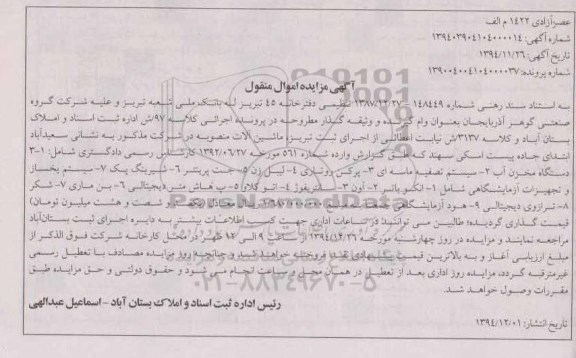 عصرآزادی ۱۴۲۲ م الف
شماره آگهی: ۱۳۹۴۰۳۹۰۴۱۰۴۰۰۰۰۱۴
تاریخ آگهی: ۱۳۹۴/۱۱/۲۶
شماره پرونده: ۱۳۹۰۰۴۰۰۴۱۰۴۰۰۰۰۳۷
آگهی مزایده اموال منقول
به استناد سند رهنی شماره ۱۴۸۴۴۹ - ۱۳۸۷/۱۲/۲۷ تنظیمی دفترخانه ۴۵ تبریز له بانک ملی شعبه تبریز و علیه شرکت گروه
صنعتی گوهر آذربایجان بعنوان وام گیرنده و وثیقه گذار مطروحه در پرونده اجرائی کلاسه ۹۷/ش اداره ثبت اسناد و املاک
بستان آباد و کلاسه ۳۱۳۷/ش نیابت اعطائی از اجرای ثبت تبریز، ماشین آلات منصوبه در شرکت مذکور به نشانی سعیدآباد
ابتدای جاده پیست اسکی سهند که طبق گزارش وارده شماره ۵۶۱ مورخه ۱۳۹۲/۰۶/۲۷ کارشناس رسمی دادگستری شامل: ۱-۳
دستگاه مخزن آب ۲- سیستم تصفیه ماسه ای ۳- پرکن روتاری ۴- لیبل زن ۵- جت پرینتر ۶- شیرینگ پک ۷- سیستم یخساز
و تجهیزات آزمایشگاهی شامل ۱- انکوباتور ۲- آون ۳- سانتریفوژ ۴- اتو کلاو ۵- پ هاش متر دیجیتالی ۶- بن ماری ۷- شکر
۸- ترازوی دیجیتالی ۹- هود آزمایشگاهی شصت و هشت میلیون تومان)
قیمت گذاری گردیده؛ طالبین می توانند در ساعات اداری جهت کسب اطلاعات بیشتر به دایره اجرای ثبت بستان‌آباد
مراجعه نمایند و مزایده در روز چهارشنبه مورخه ۱۳۹۴/۱۲/۲۶ از ساعت ۹ الی ۱۲ ظهر در محل کارخانه شرکت فوق الذکر از
مبلغ ارزیابی آغاز و به بالاترین قیمت پیشنهادی نقدا فروخته خواهد شد و چنانچه روز مزایده مصادف با تعطیل رسمی
غیرمترقبه گردد، مزایده روز اداری بعد از تعطیل در همان محل و ساعت انجام می شود و حقوق دولتی و حق مزایده طبق
مقررات وصول خواهد شد.
رئیس اداره ثبت اسناد و املاک بستان آباد - اسماعیل عبدالهی
تاریخ انتشار: ۱۳۹۴/۱۲/۰۱
ParsNamadData
۰۲۱-۸۸۳۴۹۶۷۰-۵